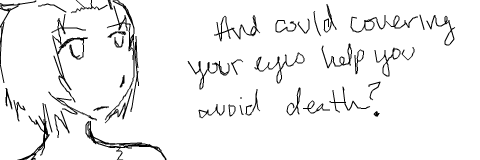 And could covering
your eyes help you
avoid death?